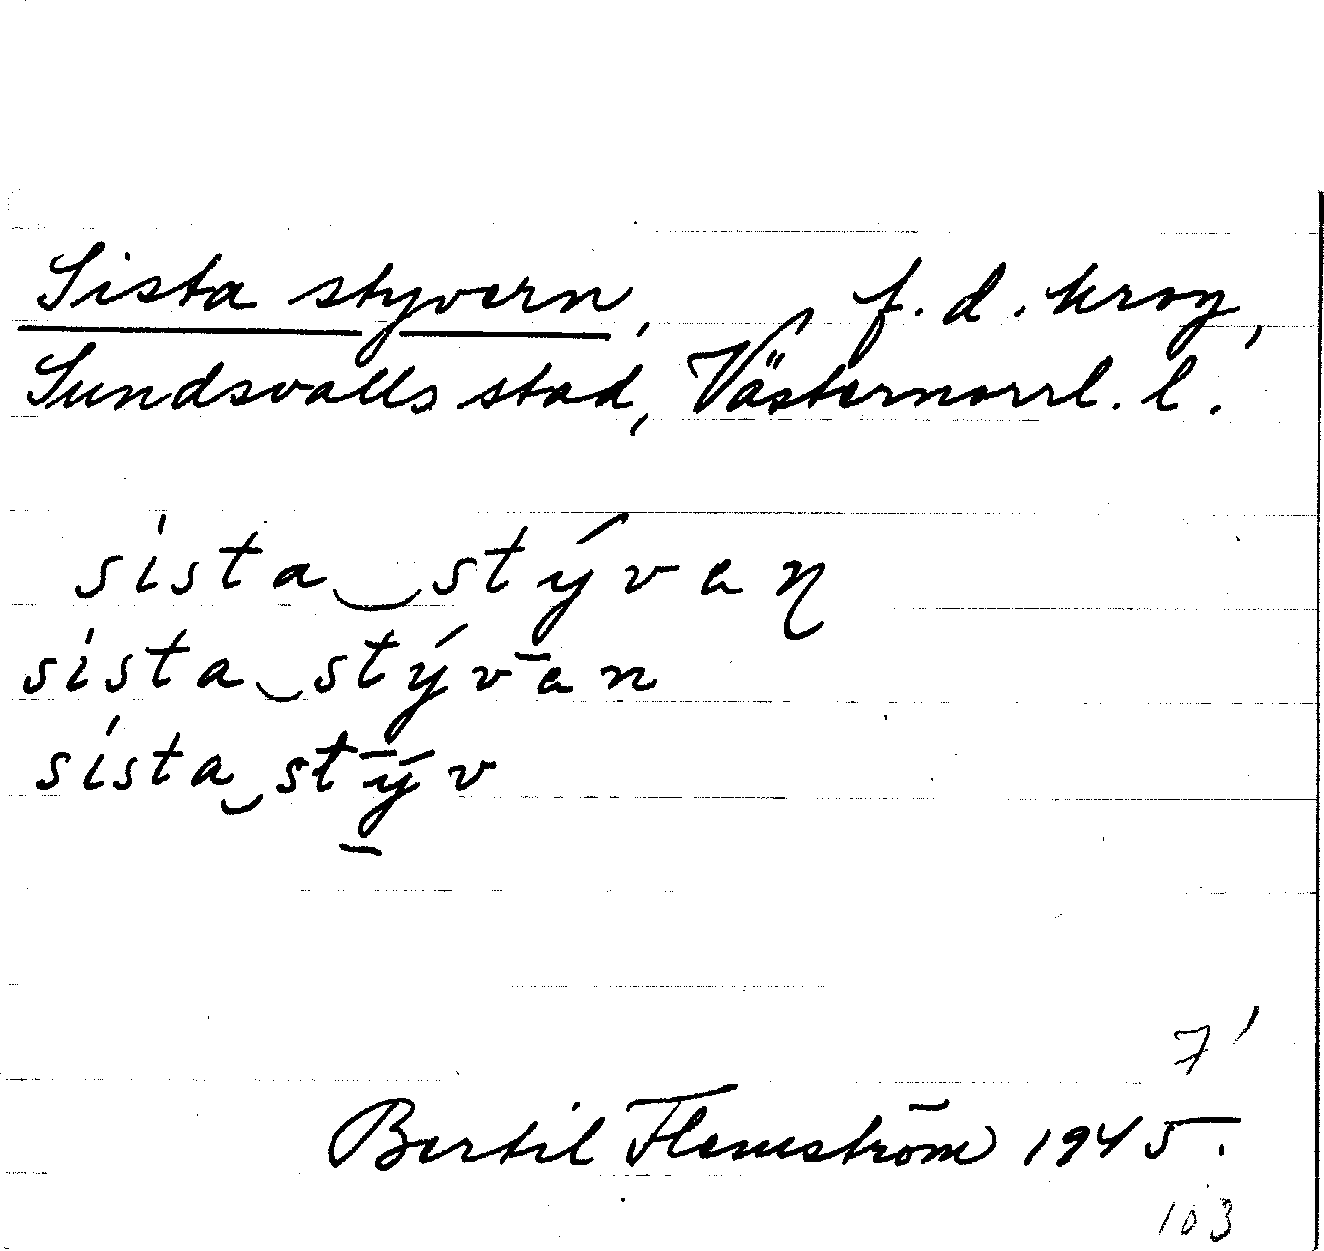 Sista styvern, f. d. krog,
Sundsvalls stad, Västernorrl. l.
sísta‿stývaɳ
sísta‿stýv̄an
sísta‿stȳ́v
7'
Bertil Flemström 1945.
103